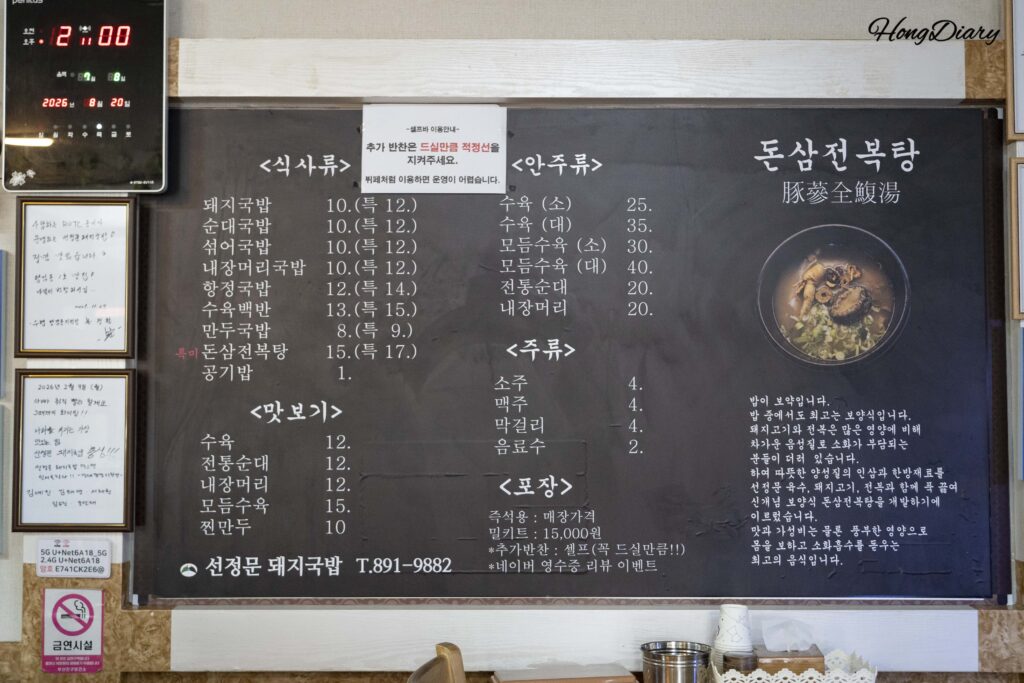 HongDiary
오전
2 11 00
음력 7월 8일
2026년 8월 20일
일 월 화 수 목 금 토
-셀프바 이용안내-
추가 반찬은 드실만큼 적정선을
지켜주세요.
뷔페처럼 이용하면 운영이 어렵습니다.
<식사류>
돼지국밥 10.(특 12.)
순대국밥 10.(특 12.)
섞어국밥 10.(특 12.)
내장머리국밥 10.(특 12.)
항정국밥 12.(특 14.)
수육백반 13.(특 15.)
만두국밥 8.(특 9.)
특미 돈삼전복탕 15.(특 17.)
공기밥 1.
<맛보기>
수육 12.
전통순대 12.
내장머리 12.
모듬수육 15.
찐만두 10
선정문 돼지국밥 T.891-9882
<안주류>
수육 (소) 25.
수육 (대) 35.
모듬수육 (소) 30.
모듬수육 (대) 40.
전통순대 20.
내장머리 20.
<주류>
소주 4.
맥주 4.
막걸리 4.
음료수 2.
<포장>
즉석용 : 매장가격
밀키트 : 15,000원
*추가반찬 : 셀프(꼭 드실만큼!!)
*네이버 영수증 리뷰 이벤트
돈삼전복탕
豚蔘全鰒湯
밥이 보약입니다.
밥 중에서도 최고는 보양식입니다.
돼지고기와 전복은 많은 영양에 비해
차가운 음성질로 소화가 부담되는
분들이 더러 있습니다.
하여 따뜻한 양성질의 인삼과 한방재료를
선정문 육수, 돼지고기, 전복과 함께 푹 끓여
신개념 보양식 돈삼전복탕을 개발하기에
이르렀습니다.
맛과 가성비는 물론 풍부한 영양으로
몸을 보하고 소화흡수를 돕우는
최고의 음식입니다.
2026년 2월 9일 (월)
5G U+Net6A18_5G
2.4G U+Net6A18
암호 E741CK2E6@
금연시설